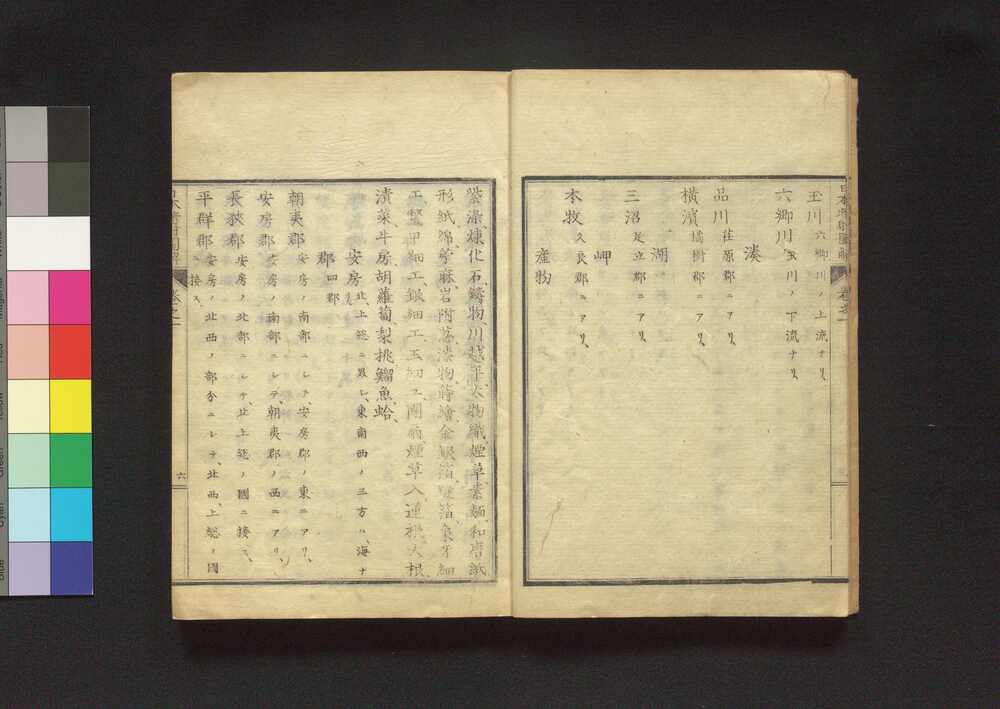 玉川六郷川ノ上流ナリ、
六郷川玉川ノ下流ナリ、
湊
品川荏原郡ニアリ、
横濱橘樹郡ニアリ、
湖
三沼足立郡ニアリ、
岬
本牧久良郡ニアリ、
産物
紫海苔、煉化石、鋳物、川越平、木物織、煙草、素麺、和唐紙
形紙、綿、苧麻、岩附葛、漆物、蒔繪、金銀箔、箔、象牙細
工、鼈甲細工、銀細工、玉細工、團扇、煙草入、蓮根、大根、
漬菜、牛房、胡蘿蔔、梨、桃、鰡魚、蛤、
安房北、上総ニ界シ、東南西ノ三方ハ、海ナ
郡四郡
朝夷郡安房ノ南部ニシテ、安房郡ノ東ニアリ、
安房郡安房ノ南部ニシテ、朝夷郡ノ西ニアリ、
長狹郡安房ノ北部ニシテ、北上総ノ國ニ接ス、
平群郡安房ノ北西ノ部分ニシテ、北西、上総ノ國
ニ接ス、
卷之一
六